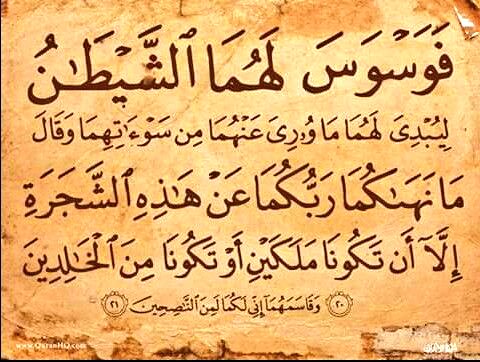 فَوَسْوَسَ لَهُمَا ٱلشَّيْطَـٰنُ
لِيُبْدِىَ لَهُمَا مَا وُۥرِىَ عَنْهُمَا مِن سَوْءَٰتِهِمَا وَقَالَ
مَا نَهَىٰكُمَا رَبُّكُمَا عَنْ هَـٰذِهِ ٱلشَّجَرَةِ
إِلَّآ أَن تَكُونَا مَلَكَيْنِ أَوْ تَكُونَا مِنَ ٱلْخَـٰلِدِينَ
٢٠ وَقَاسَمَهُمَآ إِنِّى لَكُمَا لَمِنَ ٱلنَّـٰصِحِينَ ٢١
www.QuranHQ.com